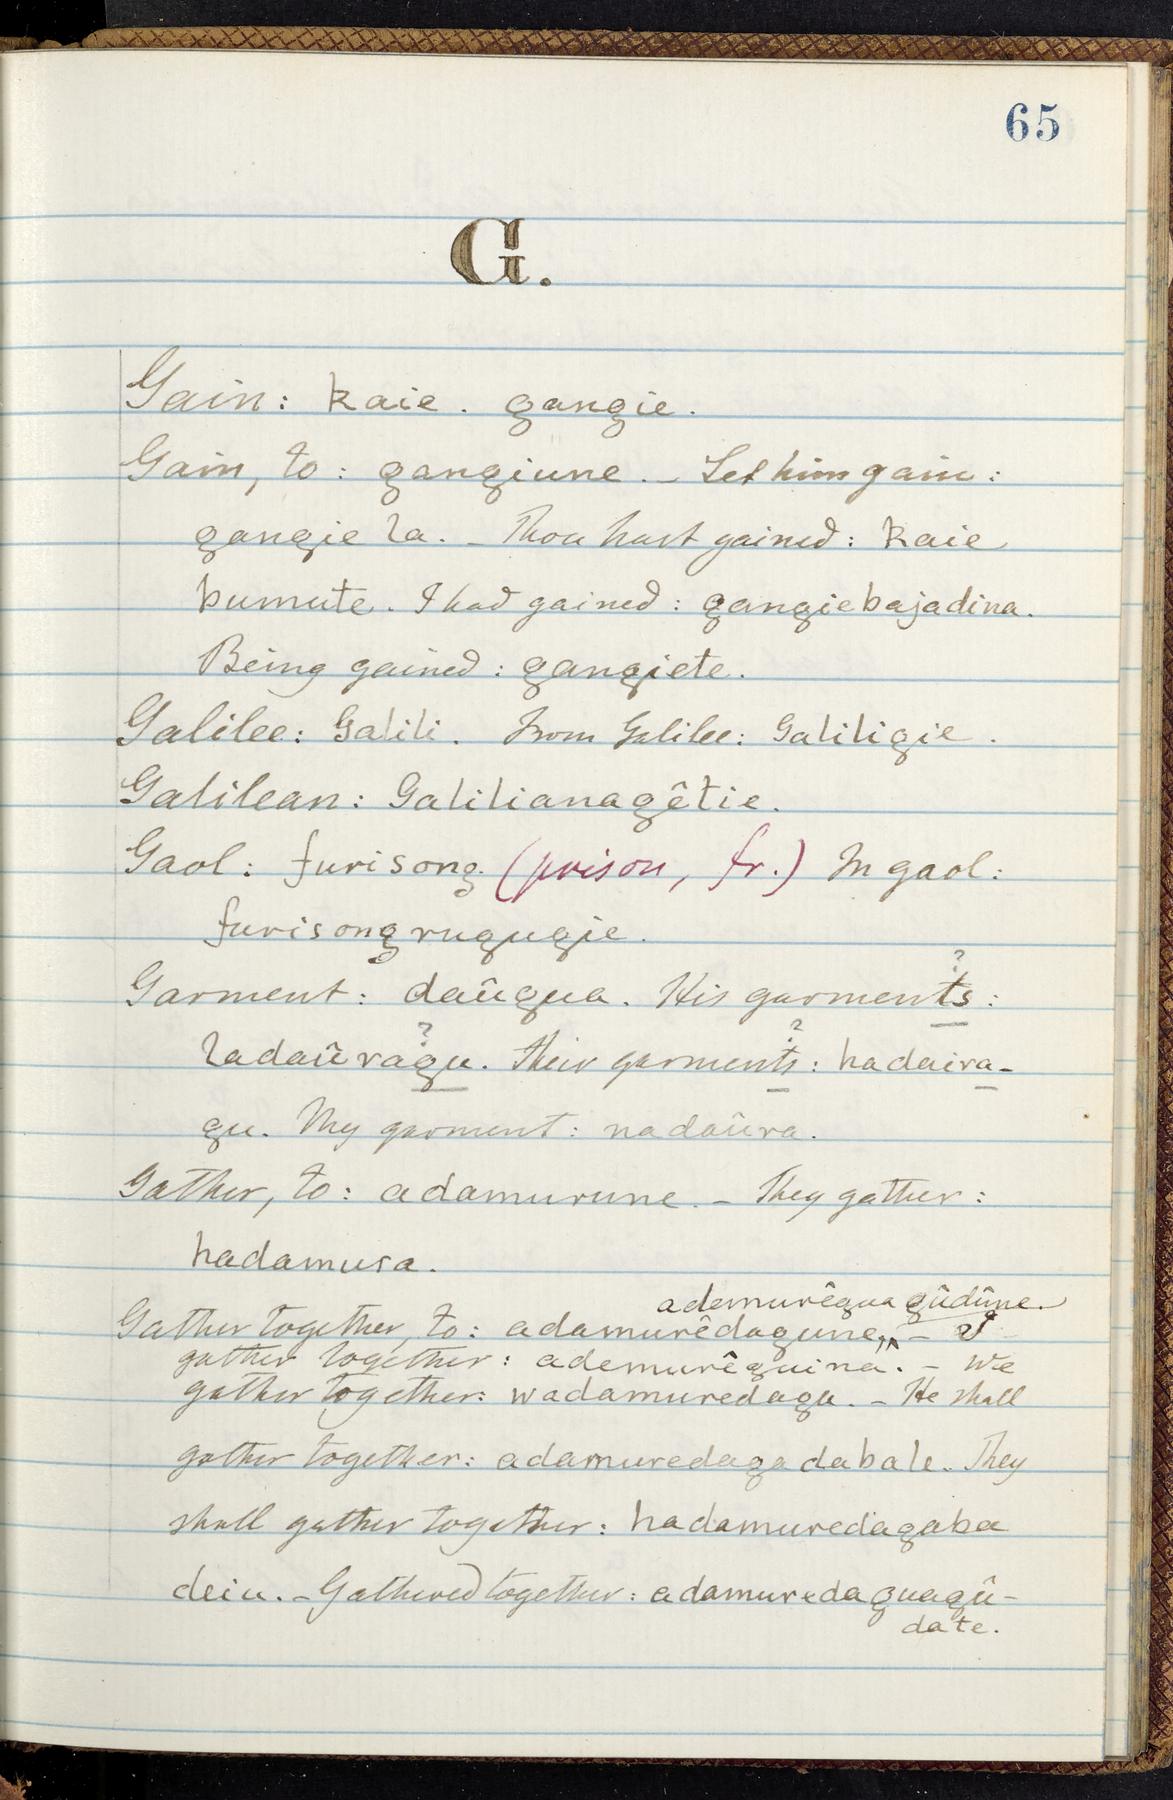 65
G.
Gain: kaie. gangie.
Gain, to: gangiune. – Let him gain:
gangie la. – Thou hast gained: kaie
bumute. I had gained: gangiebajadina.
Being gained: gangiete.
Galilee: Galili. From Galilee: Galiligie.
Galilean: Galilianagêtie.
Gaol: furisong (prison, fr.) In gaol:
furisongrugugie.
Garment: daûgua. His garments:
ladaûragu. Their garments: hadaira-
gu. My garment: nadaûra.
Gather, to: adamurune. – They gather:
hadamura.
ademurêgua gûdûne.
Gather together, to: adamurêdagune,, – I
gather together: ademurêguina. – We
gather together: wadamuredagu. – He shall
gather together: adamuredagadabale. They
shall gather together: hadamuredagaba
deiu. – Gathered together: adamuredaguagû-
date.